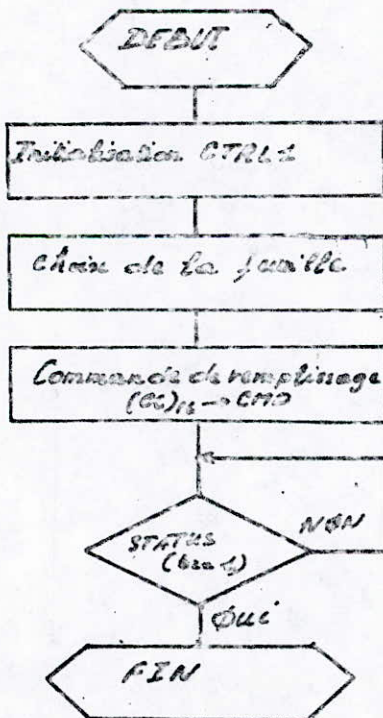 DEBUT
Initialisation CTRL1
Choix de la feuille
Commande de remplissage
→ CMD
STATUS
NON
OUI
FIN